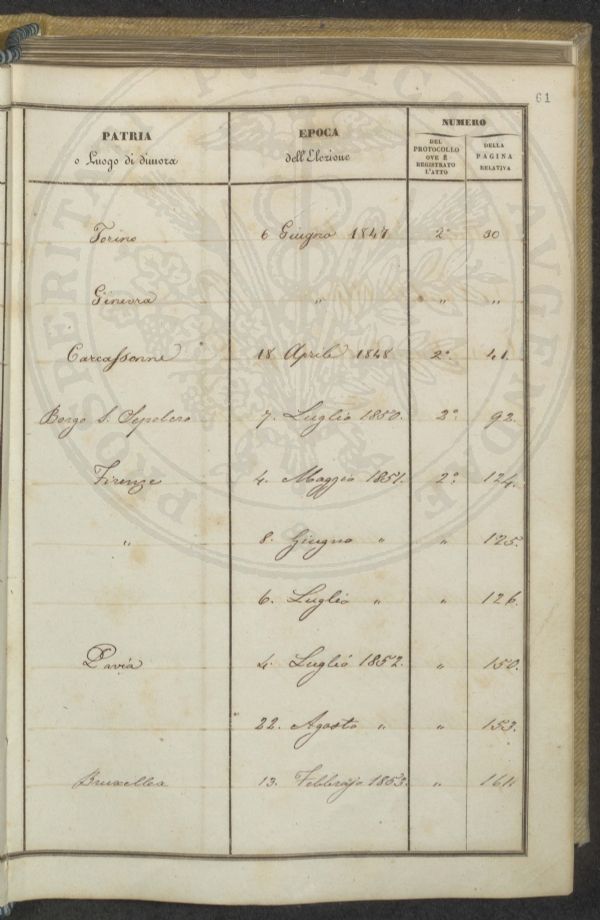 61
PATRIA
o Luogo di dimora
EPOCA
dell'Elezione
NUMERO
DEL
PROTOCOLLO
OVE È
REGISTRATO
L'ATTO
DELLA
PAGINA
RELATIVA
Torino 6 Giugno 1847 2° 30
Ginevra " " "
Carcassonne 18 Aprile 1848 2° 41.
Borgo S. Sepolcro 7. Luglio 1850. 2° 92.
Firenze 4. Maggio 1851. 2° 124.
" 8. Giugno " " 125.
6. Luglio " " 126.
Pavia 4. Luglio 1852. " 150.
22. Agosto " " 153.
Bruxelles 13. Febbrajo 1853. "
PROSPERITATI PUBLICAE AUGENDAE